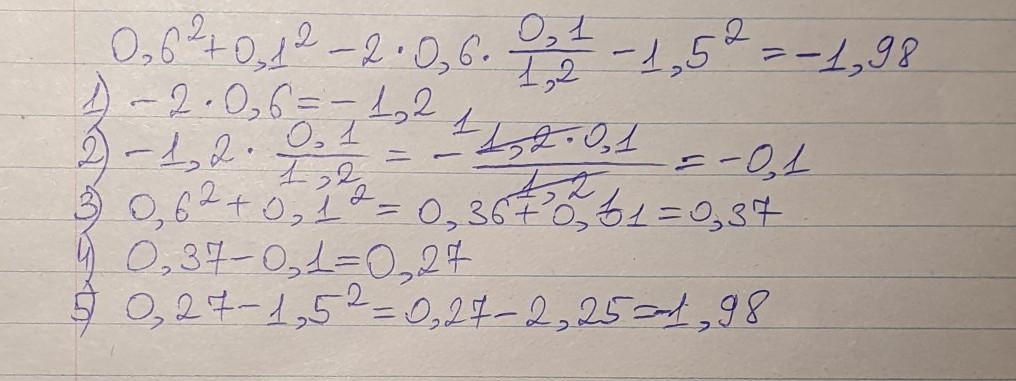 0,6² + 0,1² - 2 · 0,6 · 0,1/1,2 - 1,5² = -1,98
1) - 2 · 0,6 = - 1,2
2) - 1,2 · 0,1/1,2 = - 1,2 · 0,1/1,2 = -0,1
3) 0,6² + 0,1² = 0,36 + 0,01 = 0,37
4) 0,37 - 0,1 = 0,27
5) 0,27 - 1,5² = 0,27 - 2,25 = -1,98